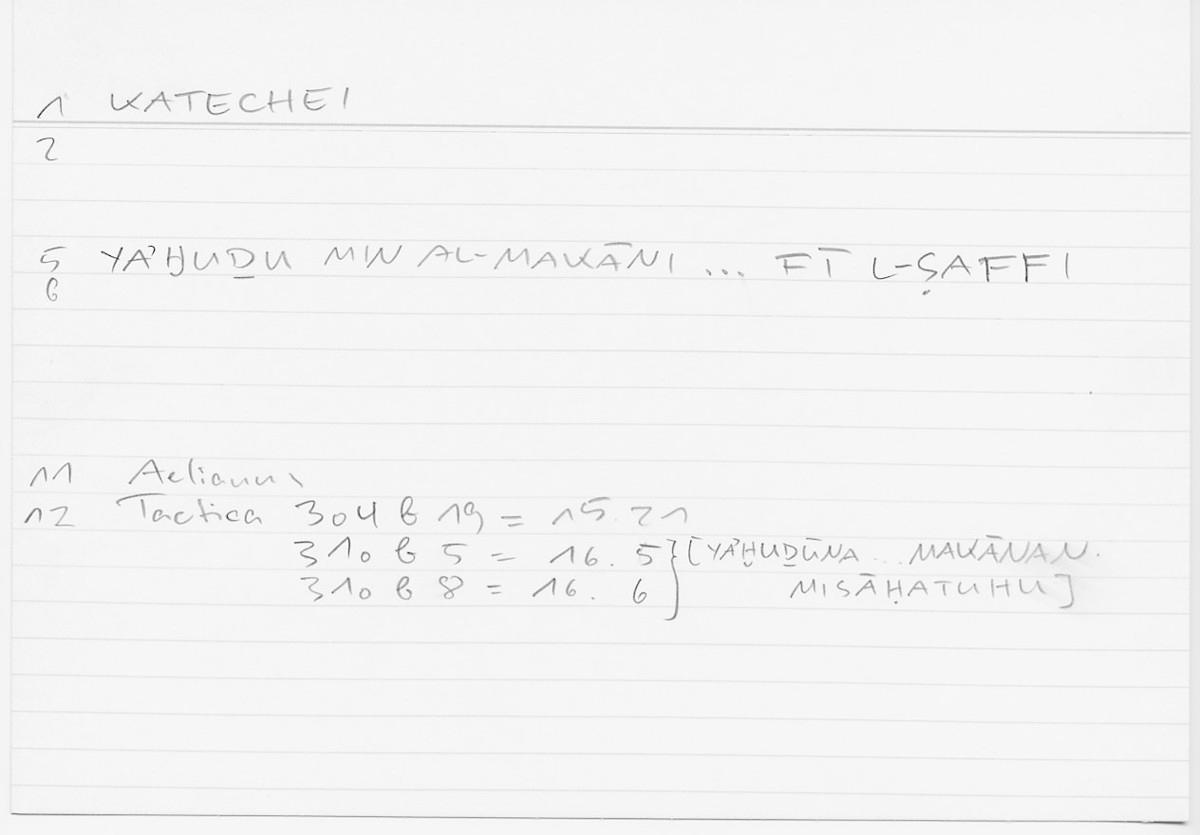 1 KATECHEI
2
5 YA'ḪUḎU MIN AL-MAKĀNI ... FĪ L-ṢAFFI
6
11 Aelianus
12 Tactica 304 b 19 = 15.21
310 b 5 = 16.5 } [YA'ḪUḎŪNA .. MAKĀNAN.
310 b 8 = 16. 6 MISĀḤATUHU]